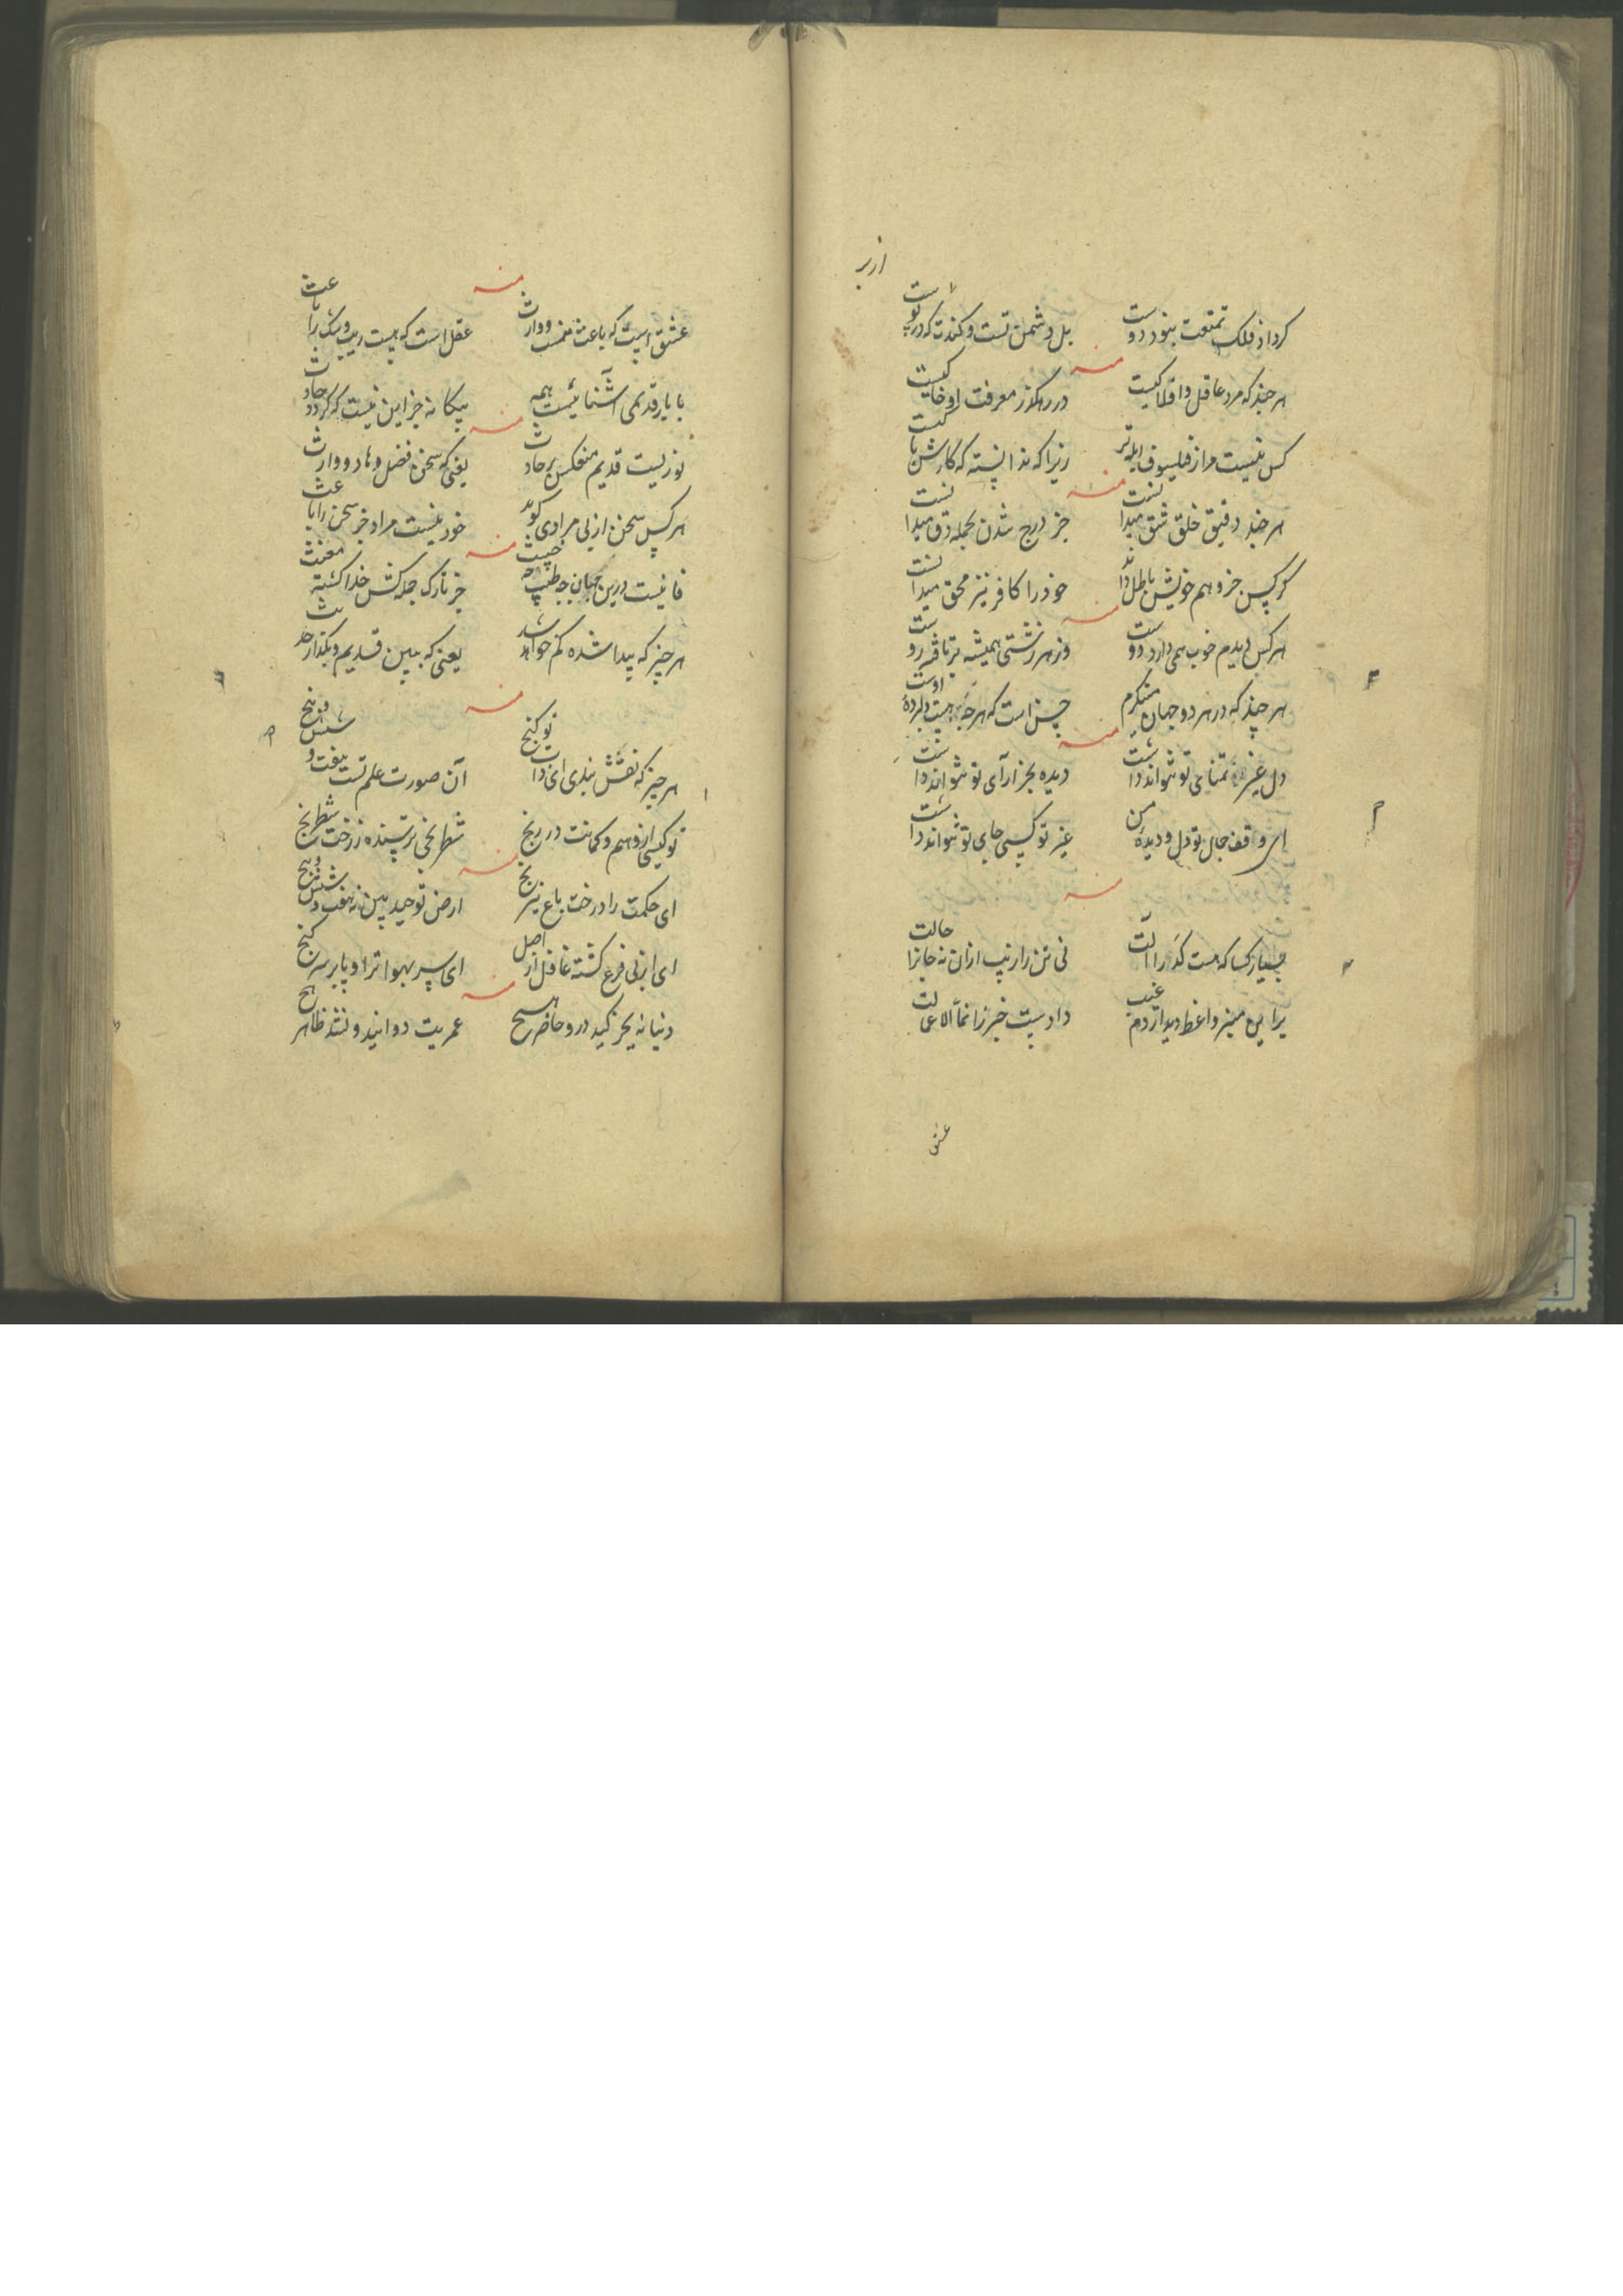 کرد از فلک تمتعت نبود دوست
بل دشمن تست و کندت که در تو است
منه
هر چند که مرد عاقل و افلاکیست
در رهگذر معرفت او خاکیست
کس نیست مرا ز فیلسوف ابله تر
زیرا که ندانسته که کارش با کیست
منه
هر چند دقیق خلق شق میدانست
جز درج شدن بجمله دق میدانست
هر کس جز وهم خویش باطل داند
خود را کافر نیز محق میدانست
منه
هر کس دیدم خوب همی دارد دوست
وز هر زشتی همیشه برتافته روست
هر چند که در هر دو جهان مینگرم
حسن است که هر چه هست در پرده اوست
منه
دل غیر تمنای تو نتواند داشت
دیده بجز آرای تو نتواند داشت
ای واقف جان تو دل و دیده من
غیر تو کسی جای تو نتواند داشت
منه
بسیار کسا که هست کر را آلت
نی تن را زیب ازان نه جان را حالت
بر این منبر واعظ دیوار دم غیب
دادست خبر ز انما الا علت
عشق
منه
عشق است که باعث منست و وارث
عقل است که هست ریب و شک را باعث
با یار قدیمی آشنائیست همه
بیگانه جز این نیست که گردد حادث
منه
نوریست قدیم منعکس بر حادث
یعنی که سخن فضل و هاد و وارث
هر کس سخن از پی مرادی گوید
خود نیست مراد جز سخن را باعث
منه
فانیست درین جهان چه طیب چه خبیث
جز تارک جمله کش خدا گشته مغیث
هر چیز که پیدا شده گم خواهد شد
یعنی که ببین قدیم و بگذار حدیث
منه
هر چیز که نقش بندی ای دانا تو گنج
آن صورت علم تست هفت و شش و پنج
تو کیستی از وهم و گمانت در رنج
شطرنجی ترسنده ز رخت شطرنج
منه
ای حکمت را درخت باغ نیرنج
ارض توحید بین نه هفت و شش و پنج
ای از پی فرع گشته غافل از اصل
ای سر بهوا ترا و پا بر سر گنج
منه
دنیا نه بجز کید درو حاضر هیچ
عمریت دوانید و نشد ظاهر هیچ